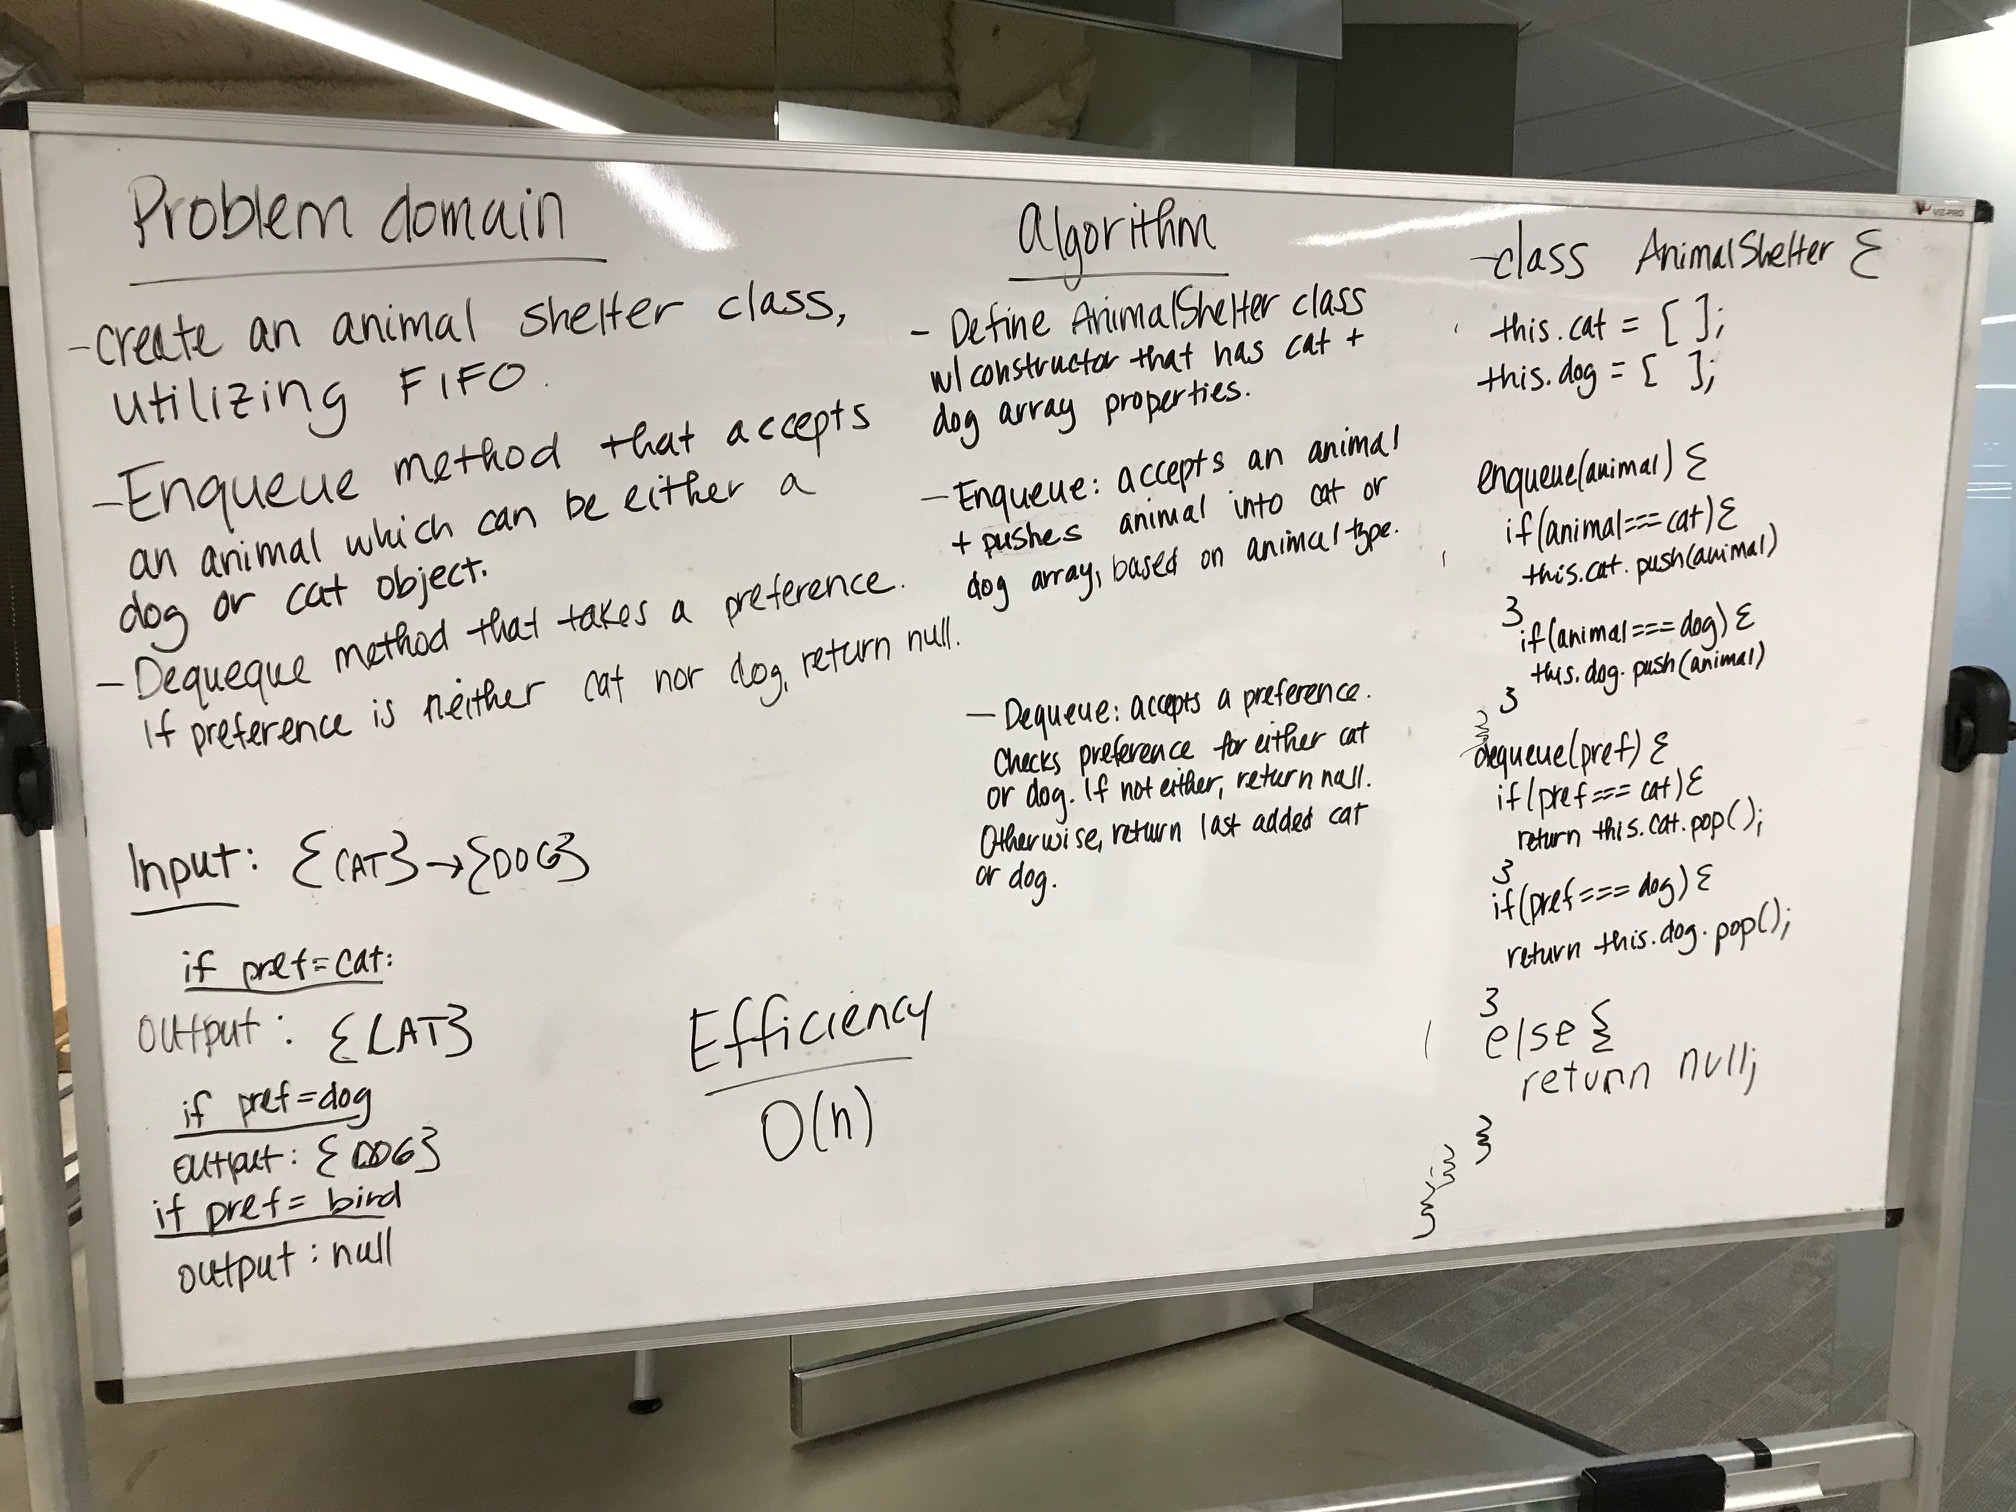 Problem domain
- create an animal shelter class,
utilizing FIFO.
- Enqueue method that accepts
an animal which can be either a
dog or cat object.
- Dequeque method that takes a preference.
If preference is neither cat nor dog, return null.
Input: {CAT} → {DOG}
if pref=cat:
output: {CAT}
if pref=dog
output: {DOG}
if pref= bird
output: null
Efficiency
O(n)
Algorithm
- Define AnimalShelter class
w/ constructor that has cat +
dog array properties.
- Enqueue: accepts an animal
+ pushes animal into cat or
dog array, based on animal type.
- Dequeue: accepts a preference.
Checks preference for either cat
or dog. If not either, return null.
Otherwise, return last added cat
or dog.
class AnimalShelter {
this.cat = [ ];
this.dog = [ ];
enqueue(animal) {
if(animal===cat){
this.cat.push(animal)
}
if(animal===dog) {
this.dog.push(animal)
}
}
dequeue(pref) {
if(pref=== cat){
return this.cat.pop();
}
if(pref=== dog) {
return this.dog.pop();
}
else {
return null;
}
}
}
VIZ-PRO